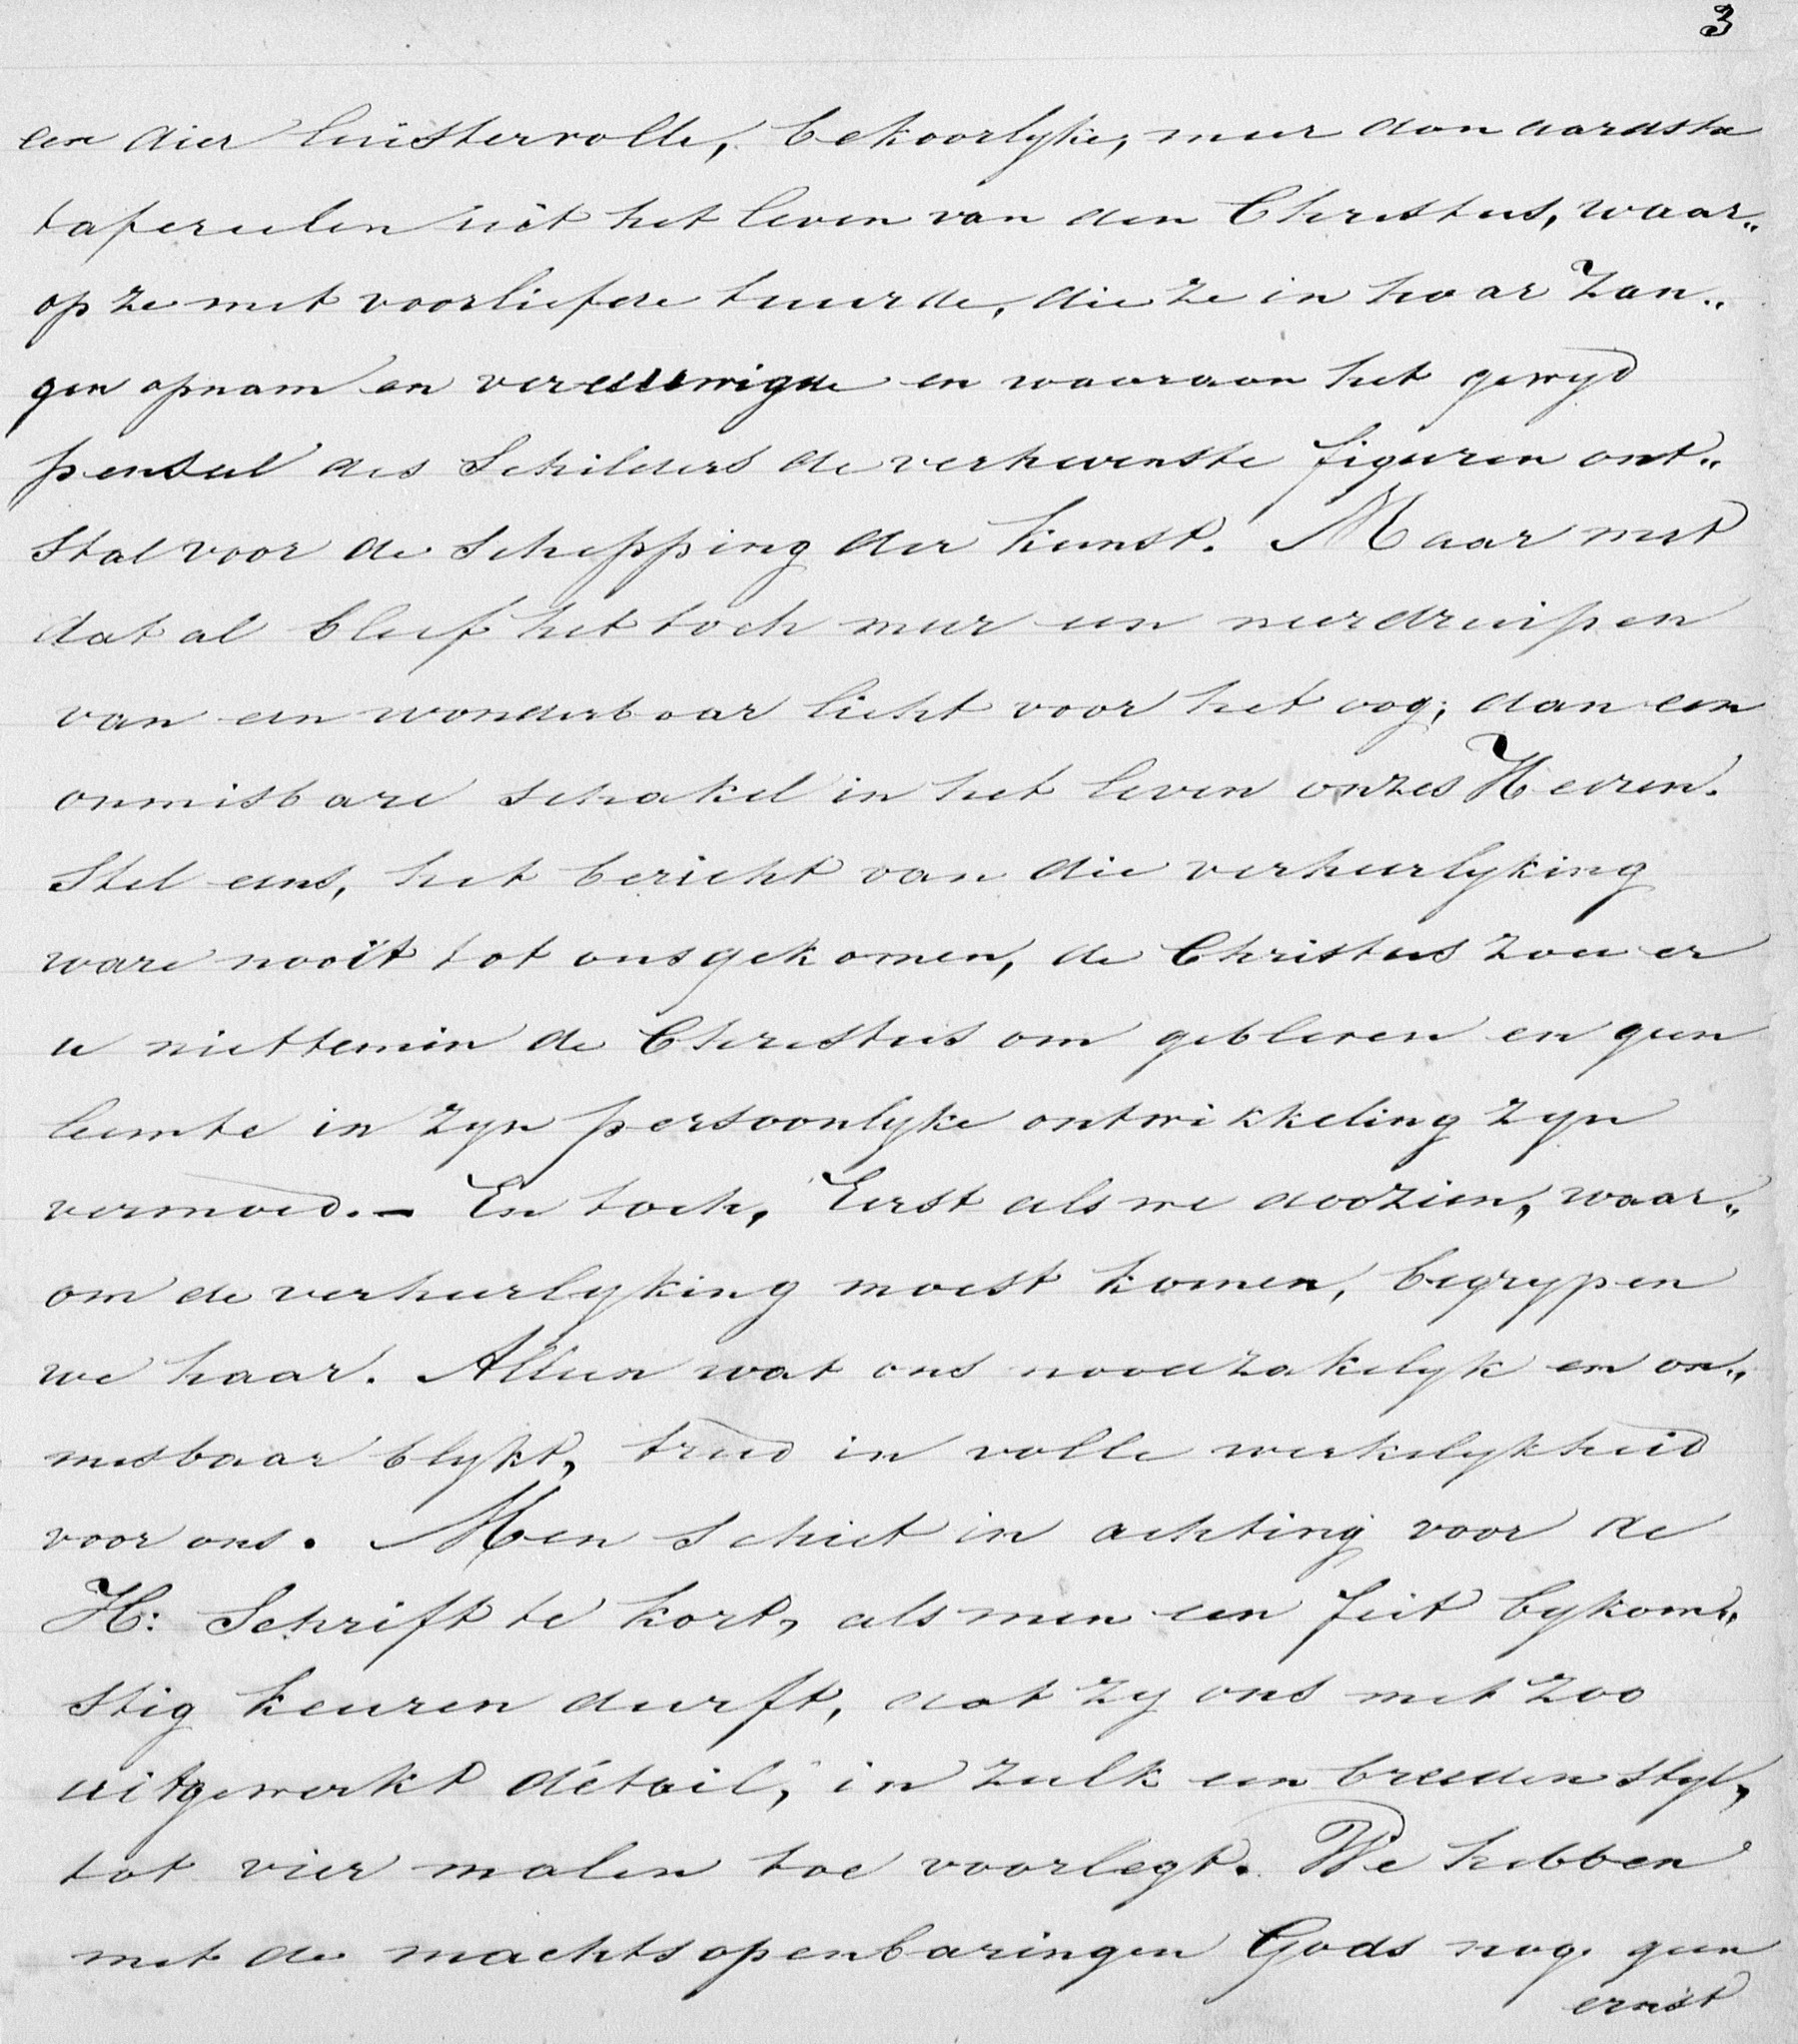 3
een dier luistervolle, bekoorlyke, meer dan aardsche
tafereelen uit het leven van den Christus, waar„
op ze met voorliefde tuurde, die ze in haar Zan„
gen opnam en vereeuwigde en waaraan het gewyd
penseel des Schilders de verhevenste figuren ont„
Stal voor de Schepping der kunst. Maar met
dat al bleef het toch meer een neerdruipen
van een wonderbaar licht voor het oog, dan een
onmisbare schakel in het leven onzes Heeren.
Stel eens, het bericht van die verheerlyking
ware nooit tot ons gekomen, de Christus zou er
u niettemin de Christus om gebleven en geen
leemte in zyn persoonlyke ontwikkeling zyn
vermoed. – En toch, Eerst als we doozien, waar„
om de verheerlyking moest komen, begrypen
we haar. Alleen wat ons noodzakelyk en on„
misbaar blykt, treed in volle werkelykheid
voor ons. Men Schiet in achting voor de
H: Schrift te kort, als men een feit bykom„
stig keuren durft, dat zy ons met zoo
uitgewerkt détail, in zulk een breeden styl,
tot vier malen toe voorlegt. We hebben
met de machtsopenbaringen Gods nog geen
ernst